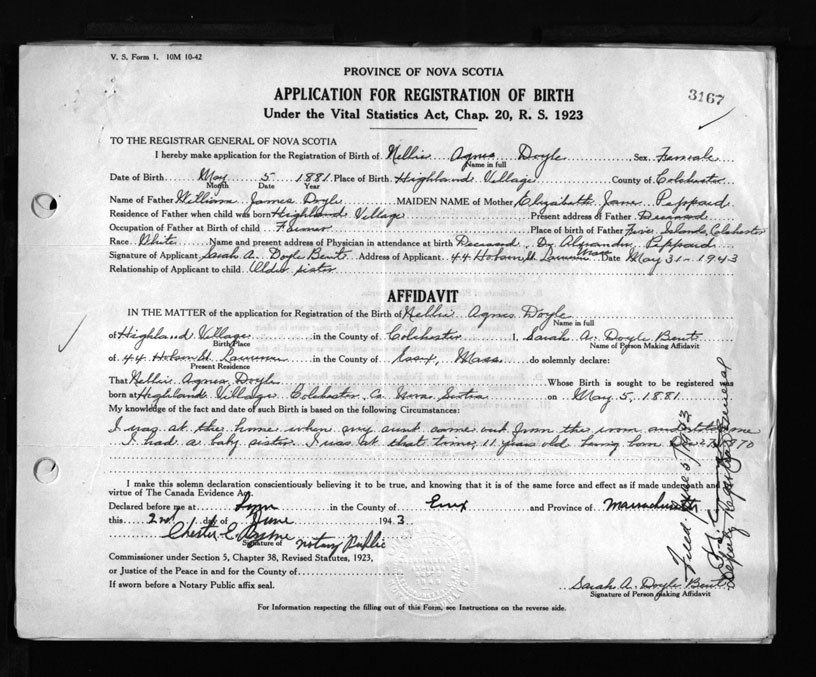 V. S. Form 1. 10M 10-42
PROVINCE OF NOVA SCOTIA
APPLICATION FOR REGISTRATION OF BIRTH
3167
Under the Vital Statistics Act, Chap. 20, R. S. 1923
TO THE REGISTRAR GENERAL OF NOVA SCOTIA
I hereby make application for the Registration of Birth of Nellie Agnes Doyle Sex Female
Name in full
Date of Birth May 5 1881 Place of Birth Highland Village County of Colchester
Month Date Year
Name of Father William James Doyle MAIDEN NAME of Mother Elizabeth Jane Peppard
Residence of Father when child was born Highland Village Present address of Father Deceased
Occupation of Father at Birth of child Farmer Place of birth of Father Five Islands, Colchester
Race White Name and present address of Physician in attendance at birth Deceased, Dr Alexander Peppard
Signature of Applicant Sarah A. Doyle Bent Address of Applicant 44 Mass Date May 31 - 1943
Relationship of Applicant to child Older sister
AFFIDAVIT
IN THE MATTER of the application for Registration of the Birth of Nellie Agnes Doyle
Name in full
of Highland Village in the County of Colchester I, Sarah A. Doyle Bent
Birth Place Name of Person Making Affidavit
of 44 in the County of Essex, Mass. do solemnly declare:
Present Residence
That Nellie Agnes Doyle Whose Birth is sought to be registered was
born at Highland Village Colchester Co Nova Scotia on May 5, 1881
My knowledge of the fact and date of such Birth is based on the following Circumstances:
I was at the home when my aunt came out from the room and told me
I had a baby sister. I was at that time, 11 years old having been born 1870
I make this solemn declaration conscientiously believing it to be true, and knowing that it is of the same force and effect as if made under oath and
virtue of The Canada Evidence Act.
Declared before me at Lynn in the County of Essex and Province of Massachusetts
this 2nd day of June 1943.
Chester E. Notary Public
Signature of
Commissioner under Section 5, Chapter 38, Revised Statutes, 1923,
or Justice of the Peace in and for the County of
If sworn before a Notary Public affix seal.
Sarah A. Doyle Bent
Signature of Person Making Affidavit
For Information respecting the filling out of this Form, see Instructions on the reverse side.
Deputy Registrar General